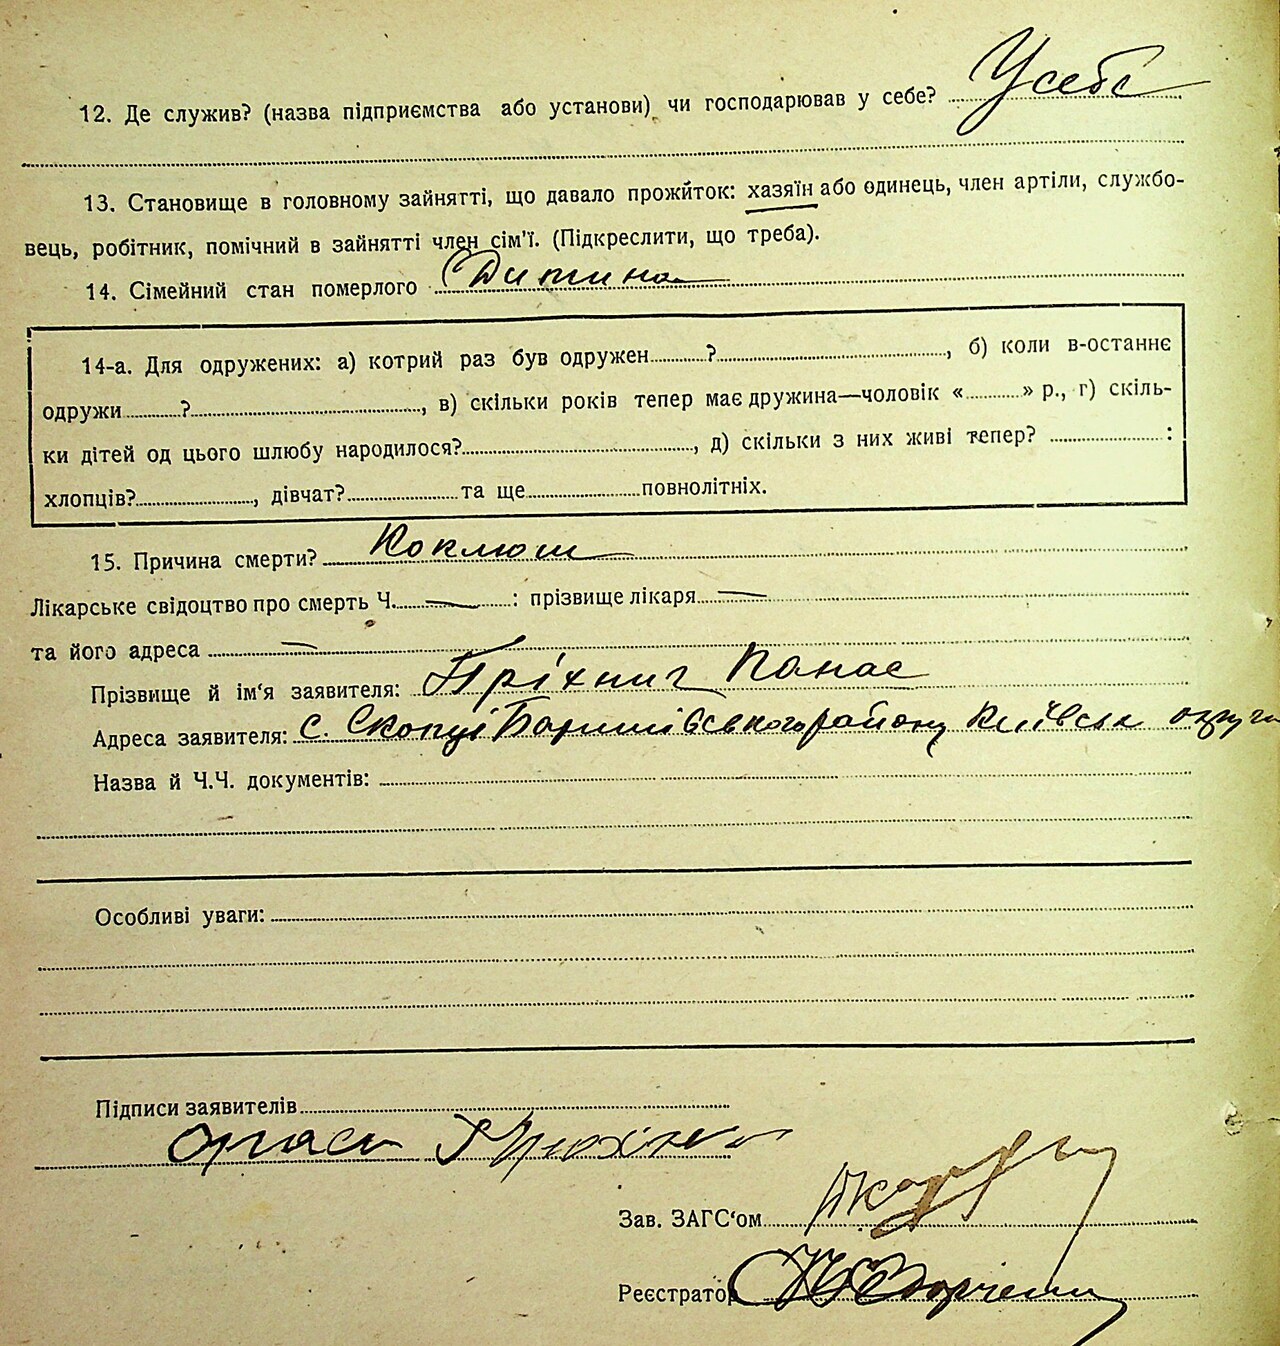 12. Де служив? (назва підприємства або установи) чи господарював у себе? У себе
13. Становище в головному зайнятті, що давало прожиток: хазяїн або одинець, член артілі, службо-
вець, робітник, помічний в зайнятті член сім'ї. (Підкреслити, що треба).
14. Сімейний стан померлого Дитина
14-а. Для одружених: а) котрий раз був одружен........?........, б) коли в-останнє
одружи........?........, в) скільки років тепер має дружина—чоловік «........» р., г) скіль-
ки дітей од цього шлюбу народилося?........, д) скільки з них живі тепер? ........:
хлопців?........, дівчат?........ та ще........повнолітніх.
15. Причина смерти? Коклюш
Лікарське свідоцтво про смерть Ч. — : прізвище лікаря —
та його адреса —
Прізвище й ім'я заявителя: Панас
Адреса заявителя: с. Скопці Баришівського району Київськ округи
Назва й Ч.Ч. документів:
Особливі уваги:
Підписи заявителів
Зав. ЗАГС'ом
Реєстратор